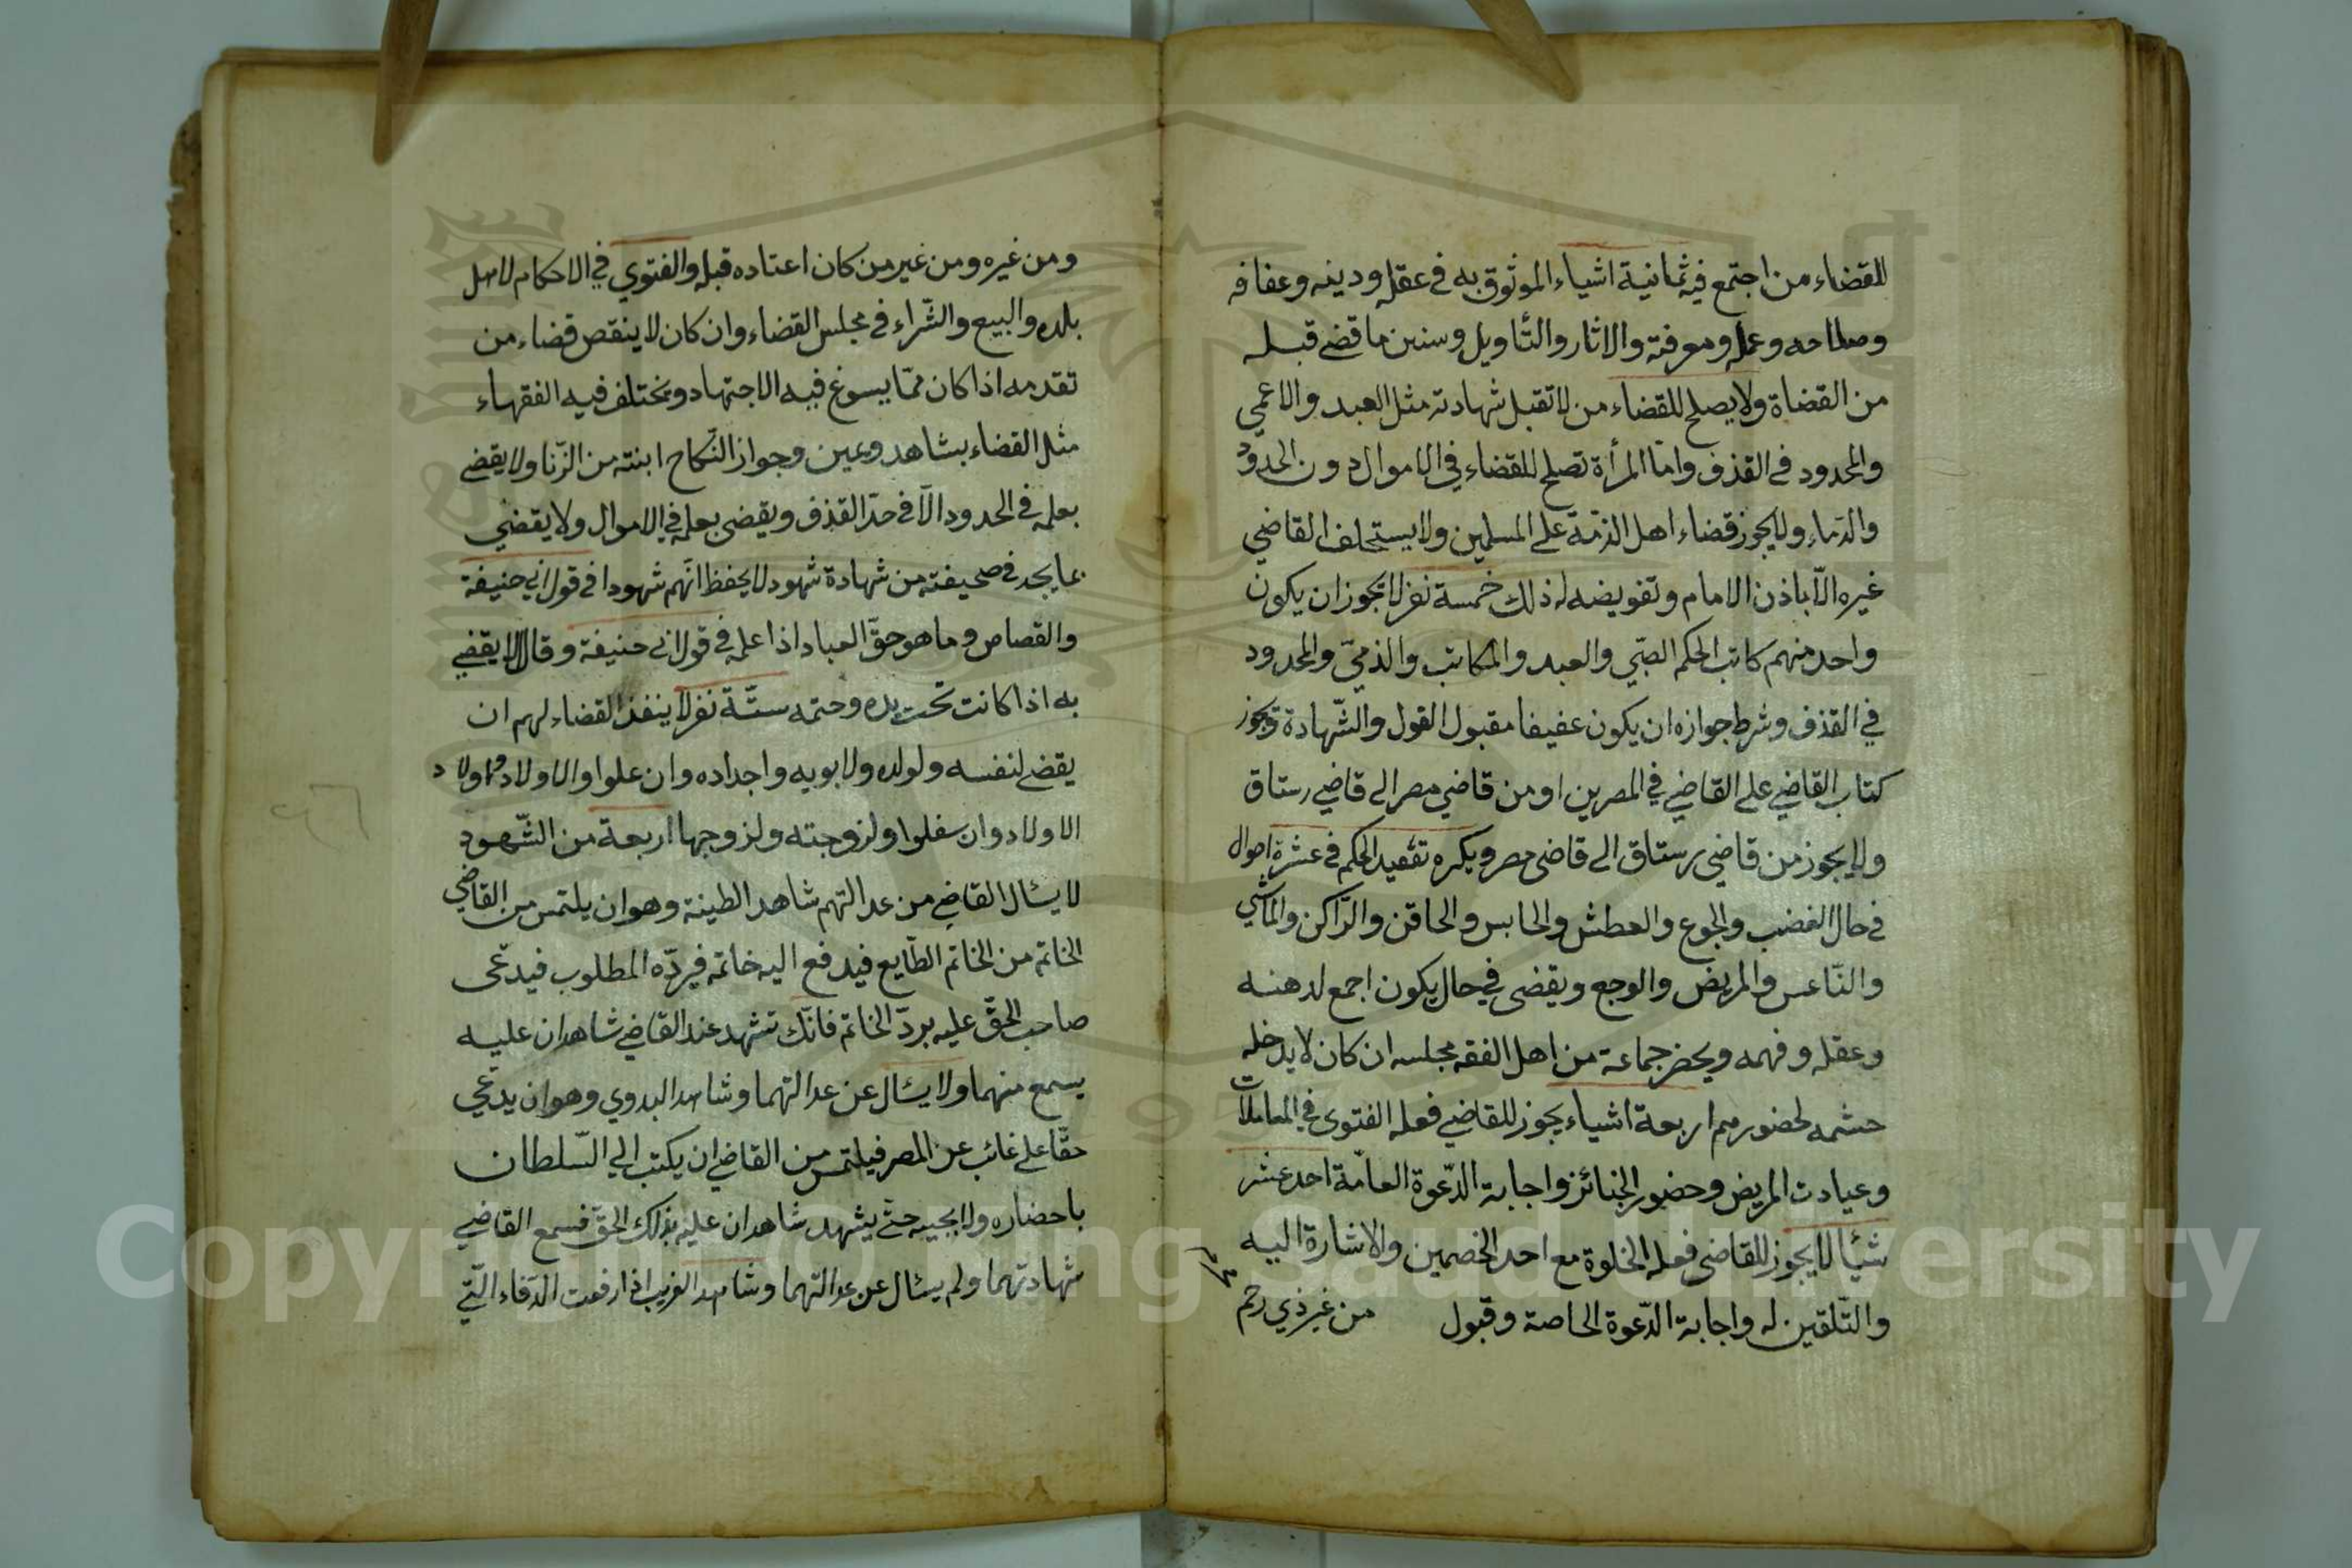 للقضاء من اجتمع فيه ثمانية اشياء الموثوق به في عقله ودينه وعفافه
وصلاحه وعمله ومعرفته والاثار والتأويل وسنين ما قضى قبله
من القضاة ولا يصلح للقضاء من لا تقبل شهادته مثل العبد والاعمي
والمحدود في القذف واما المرأة تصلح للقضاء في الاموال دون الحدود
والدماء ولا يجوز قضاء اهل الذمّة على المسلمين ولا يستخلف القاضي
غيره الّا باذن الامام وتفويضه له ذلك خمسة نفر لا تجوز ان يكون
واحد منهم كاتب الحكم الصبّي والعبد والمكاتب والذميّ والمحدود
في القذف وشرط جوازه ان يكون عفيفا مقبول القول والشّهادة ويجوز
كتاب القاضي على القاضي في المصرين او من قاضي مصر الى قاضي رستاق
ولا يجوز من قاضي رستاق الى قاضى مصر ويكره الحكم في عشرة احوال
في حال الغضب والجوع والعطش والحابس والحاقن والرّاكن والماشي
والنّاعس والمريض والوجع ويقضى في حال يكون اجمع لذهنه
وعقله وفهمه ويحضر جماعة من اهل الفقه مجلسه ان كان لا يدخله
حشمه لحضورهم اربعة اشياء يجوز للقاضي فعله الفتوى في المعاملات
وعيادت المريض وحضور الجنائز واجابة الدّعوة العامّة احد عشر
شيًا لا يجوز للقاضى فعله الخلوة مع احد الخصمين والاشارة اليه
والتّلقين له واجابة الدّعوة الخاصة وقبول من غير ذي رحم
ومن غيره ومن غير من كان اعتاده قبله والفتوي في الاحكام لاهل
بلده والبيع والشّراء في مجلس القضاء وان كان لا ينقص قضاء من
تقدمه اذا كان ممّا يسوغ فيه الاجتهاد وتختلف فيه الفقهاء
مثل القضاء بشاهد ويمين وجواز النّكاح ابنته من الزّنا ولا يقضى
بعلمه في الحدود الّا في حدّ القذف ويقضى بعلمه في الاموال ولا يقضي
بما يجد في صحيفته من شهادة شهود لا يحفظ انّهم شهودا في قول ابي حنيفة
والقصاص وما هو حقّ العباد اذا علمه في قول ابى حنيفة وقال لا يقضي
به اذا كانت تحت يده وختمه ستّة نفر لا ينفذ القضاء لهم ان
يقضى لنفسه ولولده ولابويه واجداده وان علوا والاولاد واولاد
الاولاد وان سفلوا ولزوجته ولزوجها اربعة من الشّهود
لا يسئال القاضي من عدالتهم شاهد الطينة وهو ان يلتمس من القاضي
الخاتم من الخاتم الطّايع فيدفع اليه خاتمه فيردّه المطلوب فيدعّى
صاحب الحقّ عليه بردّ الخاتم فانّك تشهد عند القاضي شاهدان عليه
يسمع منهما ولا يسئال عن عدالتهما وشاهد البدوي وهو ان يدعّي
حقّا على غائب عن المصر فيلتمس من القاضي ان يكتب الي السّلطان
باحضاره ولا يجيبه حتّى يشهد شاهدان عليه بذلك الحقّ فسمع القاضي
شهادتهما ولم يسئال عن عدالتهما وشاهد الغريب اذا رفعت الدّفاء الّتي
Copyright © King Saud University